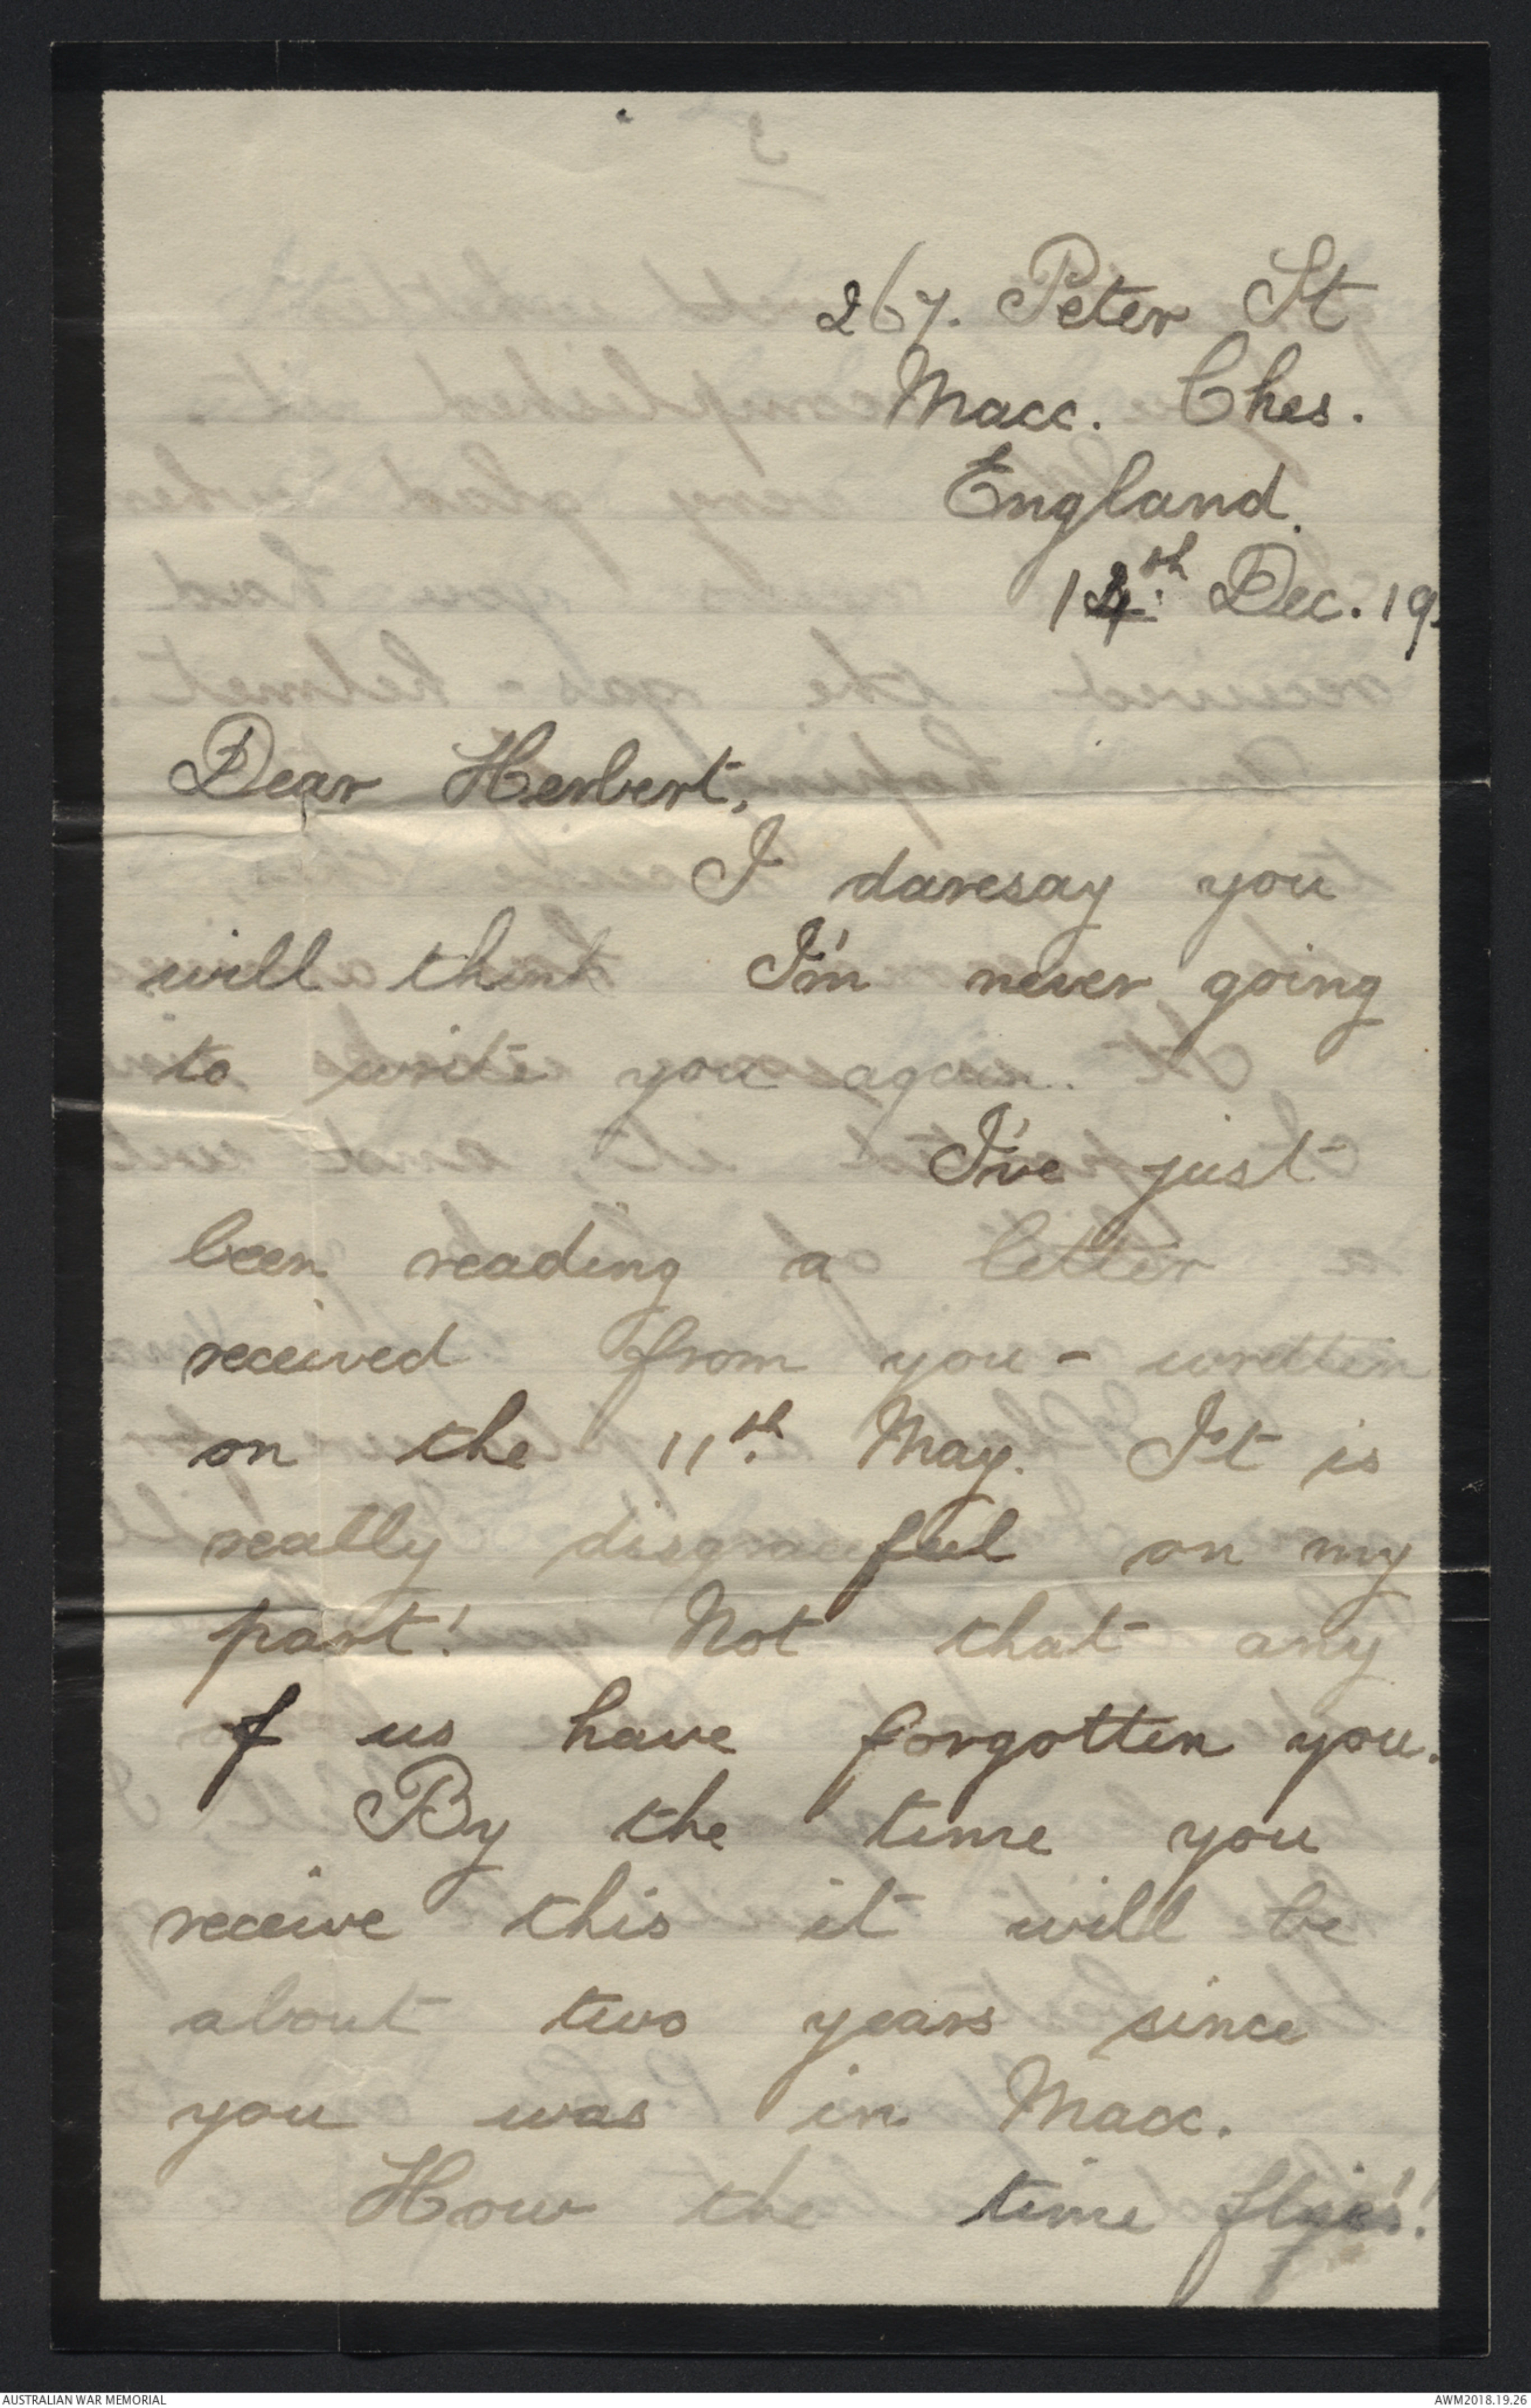 267. Peter St
Macc. Ches.
England.
14th Dec. 19.
Dear Herbert,
I daresay you
will think I'm never going
to write you again.
I've just
been reading a letter
received from you - written
on the 11th May. It is
really disgraceful on my
part! Not that any
of us have forgotten you.
By the time you
receive this it will be
about two years since
you was in Macc.
How the time flies!!
AUSTRALIAN WAR MEMORIAL
AWM2018.19.26